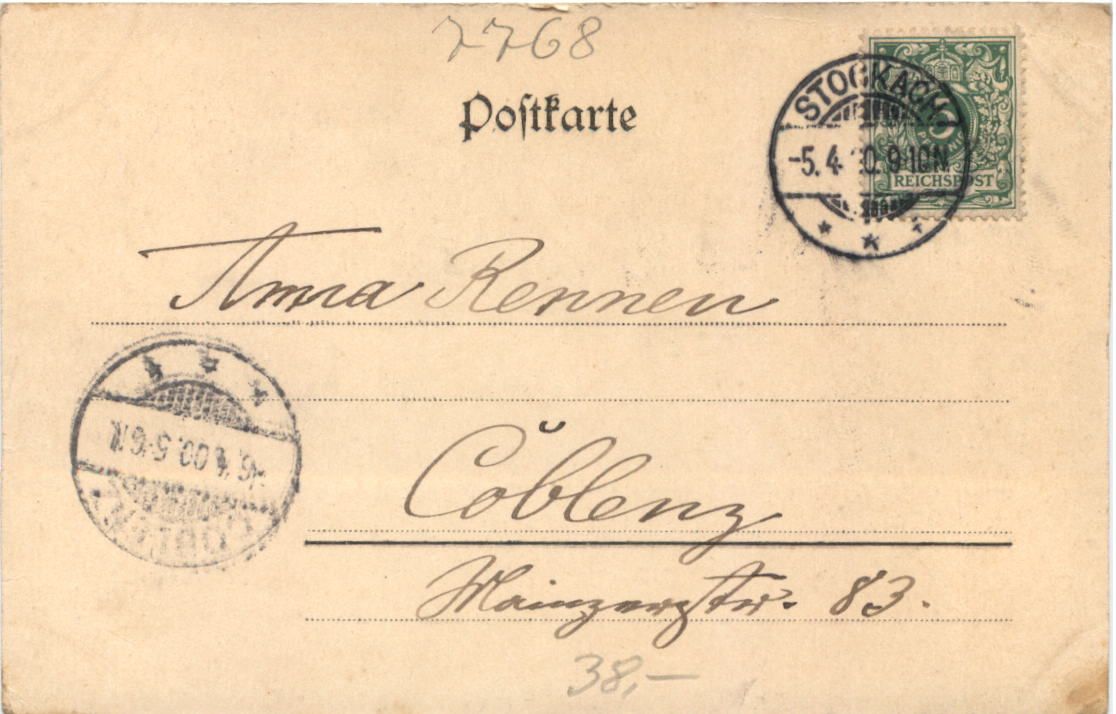 7768
Postkarte
STOCKACH
-5.4.00.9-10N
5
REICHSPOST
Anna Rennen
-6.4.00.5-6N
COBLENZ
Coblenz
Mainzerstr. 83.
38,-